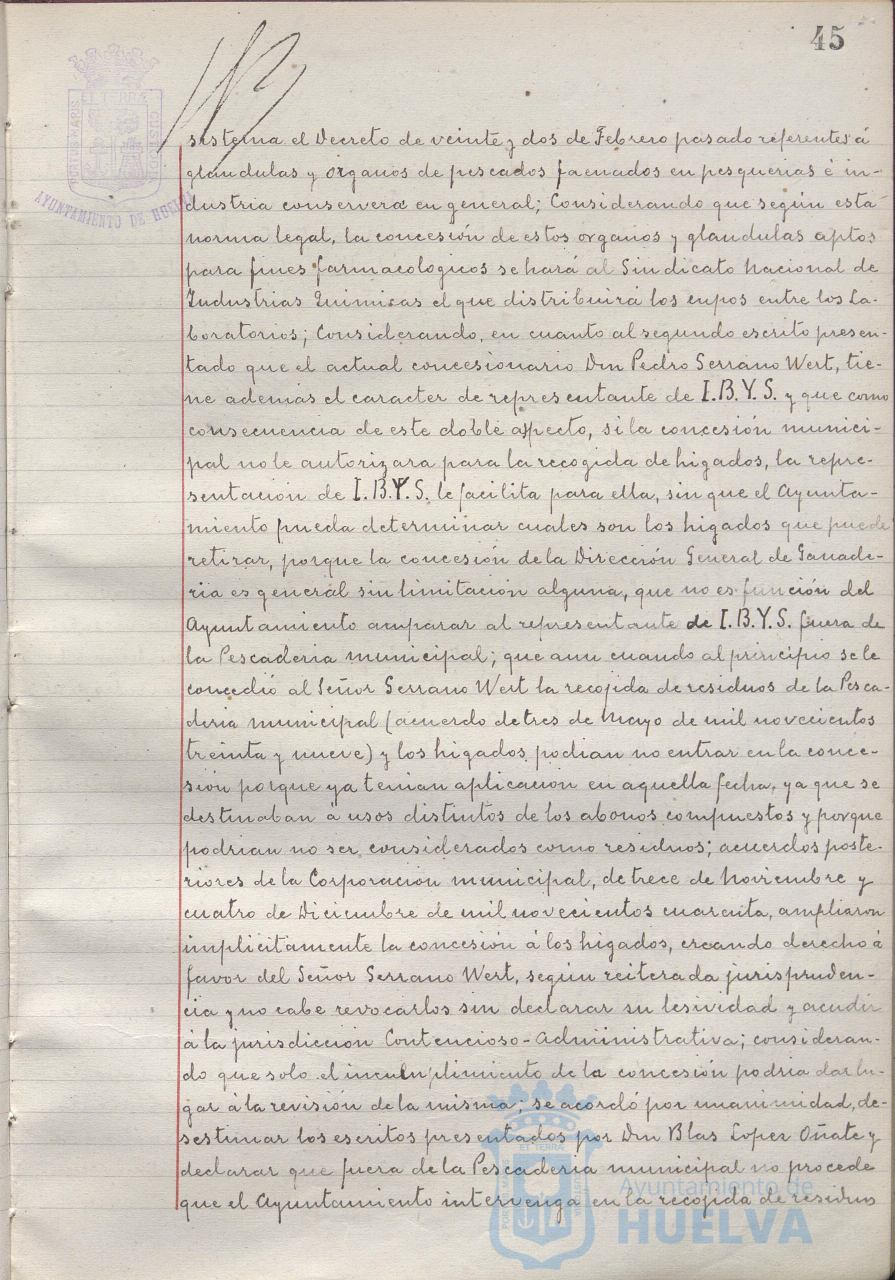 45
EL TERRÆ
PORTUS MARIS
CUSTODIA
AYUNTAMIENTO DE HUELVA
sistema el Decreto de veinte y dos de Febrero pasado referentes á
glandulas y órganos de pescados faenados en pesquerias é in-
dustria conservera en general; Considerando que según esta
norma legal, la concesión de estos organos y glandulas aptos
para fines farmacologicos se hará al Sindicato Nacional de
Industrias Quimicas el que distribuirá los cupos entre los La-
boratorios; Considerando, en cuanto al segundo escrito presen-
tado que el actual concesionario Don Pedro Serrano Wert, tie-
ne además el caracter de representante de I.B.Y.S. y que como
consecuencia de este doble aspecto, si la concesión munici-
pal no le autorizara para la recogida de higados, la repre-
sentación de I.B.Y.S. le facilita para ella, sin que el Ayunta-
miento pueda determinar cuales son los higados que puede
retirar, porque la concesión de la Dirección General de Ganade-
ria es general sin limitación alguna, que no es función del
Ayuntamiento acuparar al representante de I.B.Y.S. fuera de
la Pescaderia municipal; que aun cuando al principio se le
concedió al Señor Serrano Wert la recojida de residuos de la Pesca-
deria municipal (acuerdo de tres de Mayo de mil novecientos
treinta y nueve) y los higados podian no entrar en la conce-
sión porque ya tenian aplicacion en aquella fecha, ya que se
destinaban á usos distintos de los abonos compuestos y porque
podrian no ser considerados como residuos; acuerdos poste-
riores de la Corporacion municipal, de trece de Noviembre y
cuatro de Diciembre de mil novecientos cuarenta, ampliaron
implicitamente la concesión á los higados, creando derecho á
favor del Señor Serrano Wert, según reiterada jurispruden-
cia y no cabe revocarlos sin declarar su lesividad y acudir
á la jurisdicción Contencioso-Administrativa; consideran-
do que solo el incumplimiento de la concesión podria dar lu-
gar á la revisión de la misma; se acordó por unanimidad, de-
sestimar los escritos presentados por Don Blas Lopez Oñate y
declarar que fuera de la Pescaderia municipal no procede
que el Ayuntamiento intervenga en la recojida de residuos
Ayuntamiento de
HUELVA